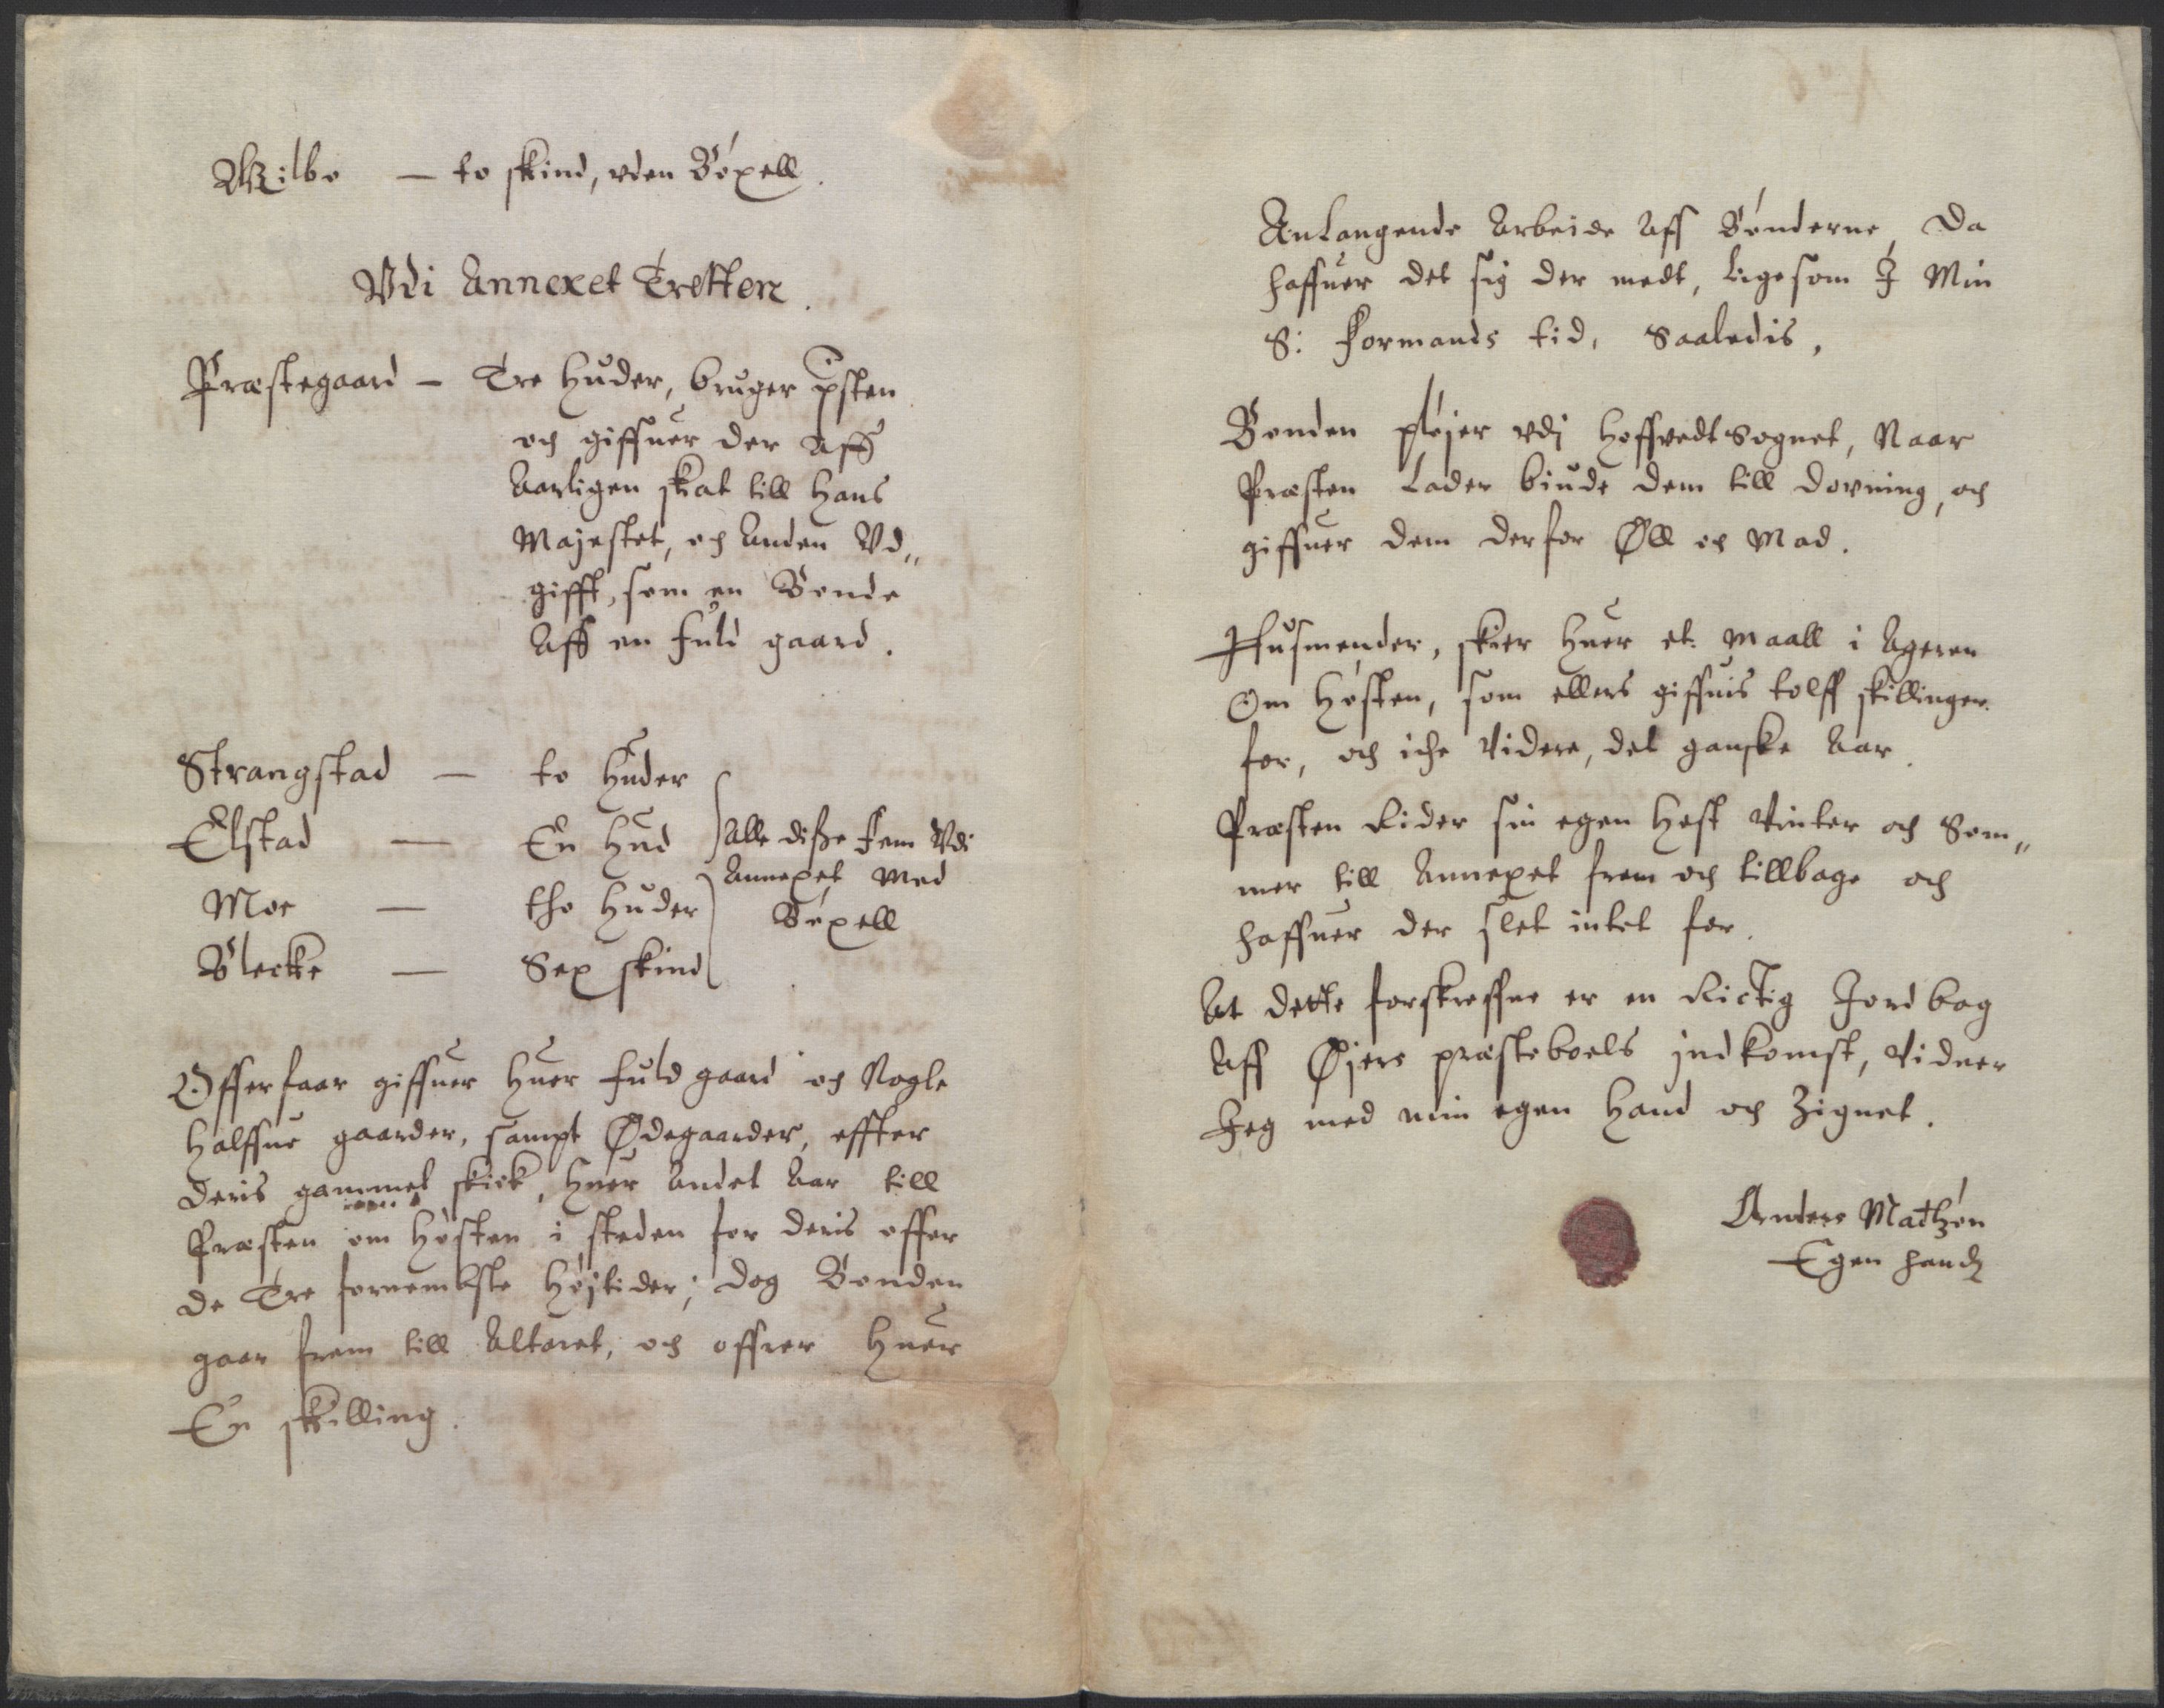 Wilbo — to skind, vden Böxell.
Vdi Annexet Tretten.
Præstegaard — Tre Huder, bruger
och giffuer der Aff
Aarligen skat till Hans
Majestet, och Anden Vd„
gifft, som en Bonde
Aff en fuld gaard.
Strangstad — to Huder
Elstad — En Hud
Moe — tho Huder
Blecke — Sex skind
Alle disze fem Vdi
Annexet Med
Böxell
Offerfaar giffuer Huer fuld gaard och Nogle
Halffue gaarder, sampt Ødegaarder, effter
Deris gammel skick, Huer Andet Aar till
Præsten om Høsten i steden for deris offer
de Tre fornembste Højtider; dog Bonden
gaar frem till Altaret, och offrer Huer
En skilling.
Anlangende Arbeide Aff Bönderne, Da
haffuer det sig der medt, ligesom I Min
S: Formands tid, Saaledis,
Bonden pløjer vdj Hoffvedt Sognet, Naar
Præsten Lader biude dem till dovning, och
giffuer dem derfor Øll och Mad.
Husmender, skier Huer et Maall i Ageren
Om Høsten, som ellers giffuis tolff skillinger
for, och iche videre, det ganske Aar.
Præsten Rider sin egen Hest Vinter och Som„
mer till Annexet frem och tillbage och
haffuer der slet intet for.
At dette forskreffne er en Rictig Jordbog
Aff Øjers præsteboels indkomst, Vidner
Jeg med min egen Hand och Zignet.
Anders Matzön
Egen handt